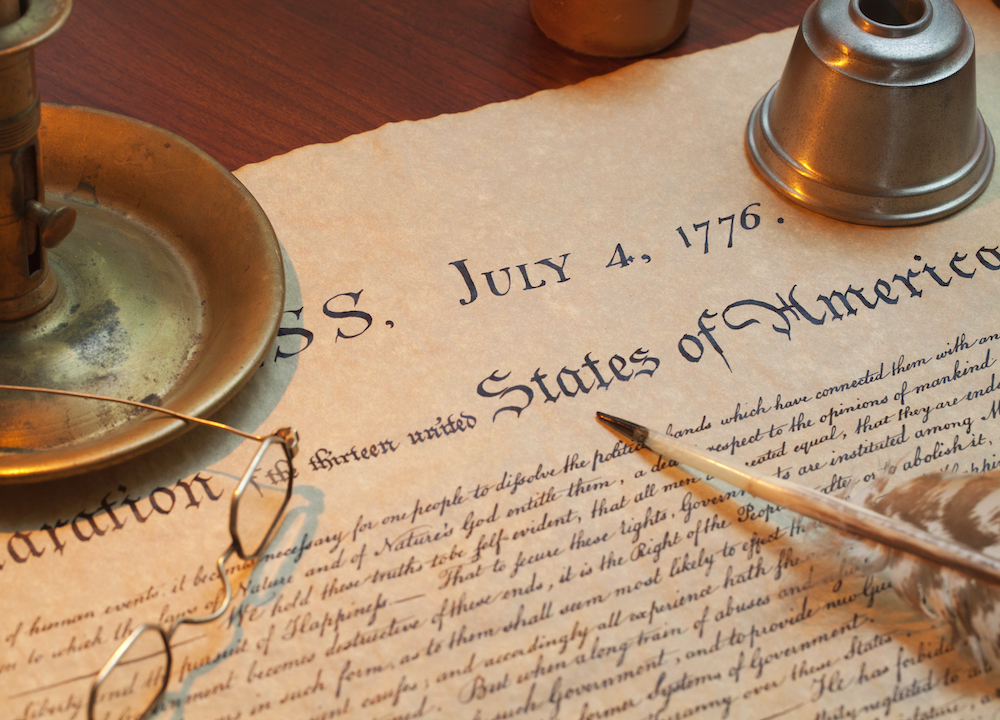 SS, JULY 4, 1776.
aration the thirteen united States of America
of human events, it becomes necessary for one people to dissolve the political bands which have connected them with an
to which the laws of Nature and of Nature's God entitle them, a decent respect to the opinions of mankind
We hold these truths to be self-evident, that all men are created equal, that they are endo
liberty and the pursuit of Happiness.— That to secure these rights, Governments are instituted among M
becomes destructive of these ends, it is the Right of the People to alter or to abolish it,
in such form, as to them shall seem most likely to effect the
causes; and accordingly all experience hath she
But when a long train of abuses and
such Government, and to provide new Gua
former Systems of Government.
Tyranny over these States
He has forbid
neglected to